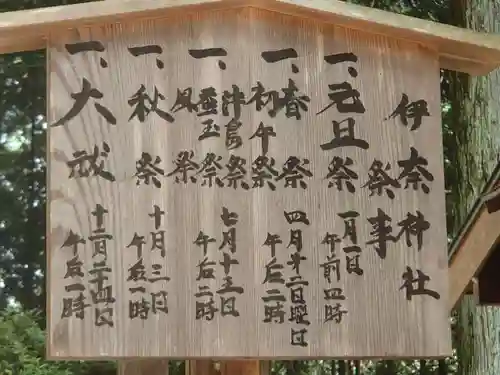 伊奈神社
祭事
一、元旦祭 一月一日
午前四時
一、春祭 四月才二日曜日
初午祭 午后二時
一、津島祭 七月十五日
蚕玉祭 午后二時
風祭
一、秋祭 十月三日
午后一時
一、大祓 十二月二十四日
午后一時